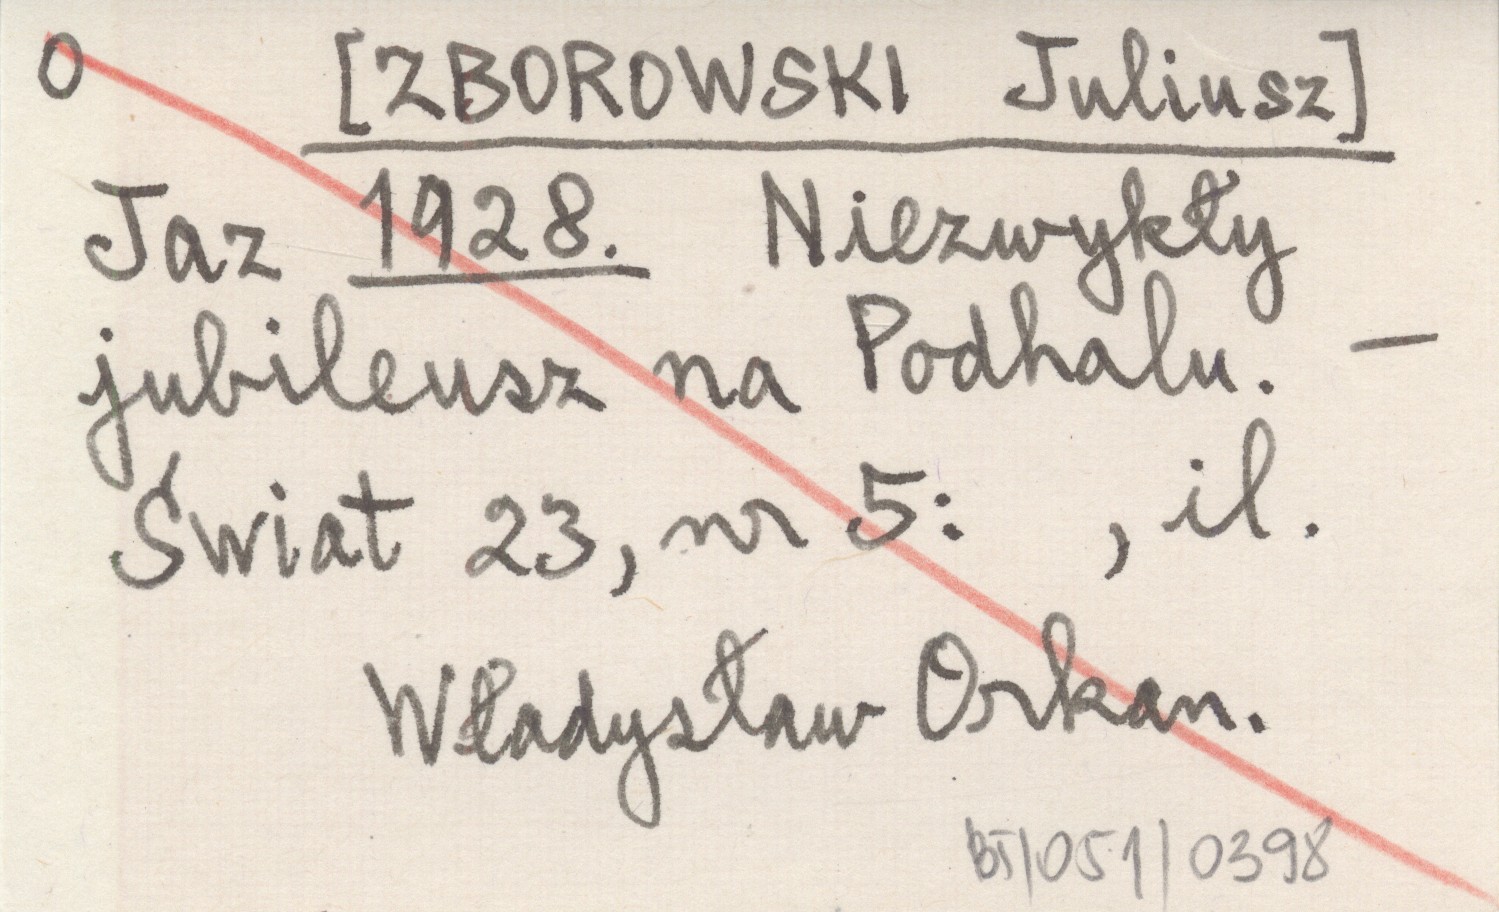 O [ZBOROWSKI Juliusz]
Jaz 1928. Niezwykły
jubileusz na Podhalu. —
Świat 23, nr 5: , il.
Władysław Orkan.
BT/051/0398